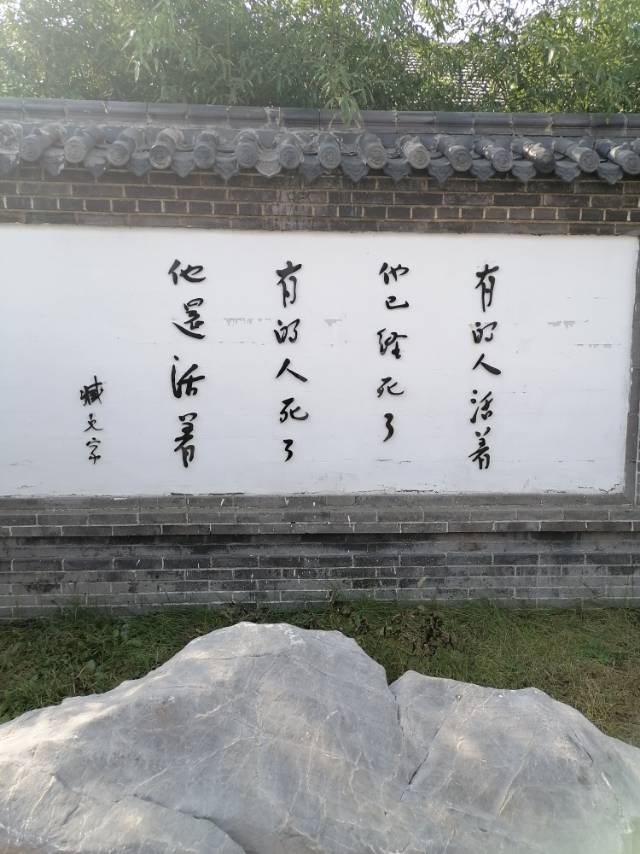 有的人活着
他已经死了
有的人死了
他是活着
臧克家